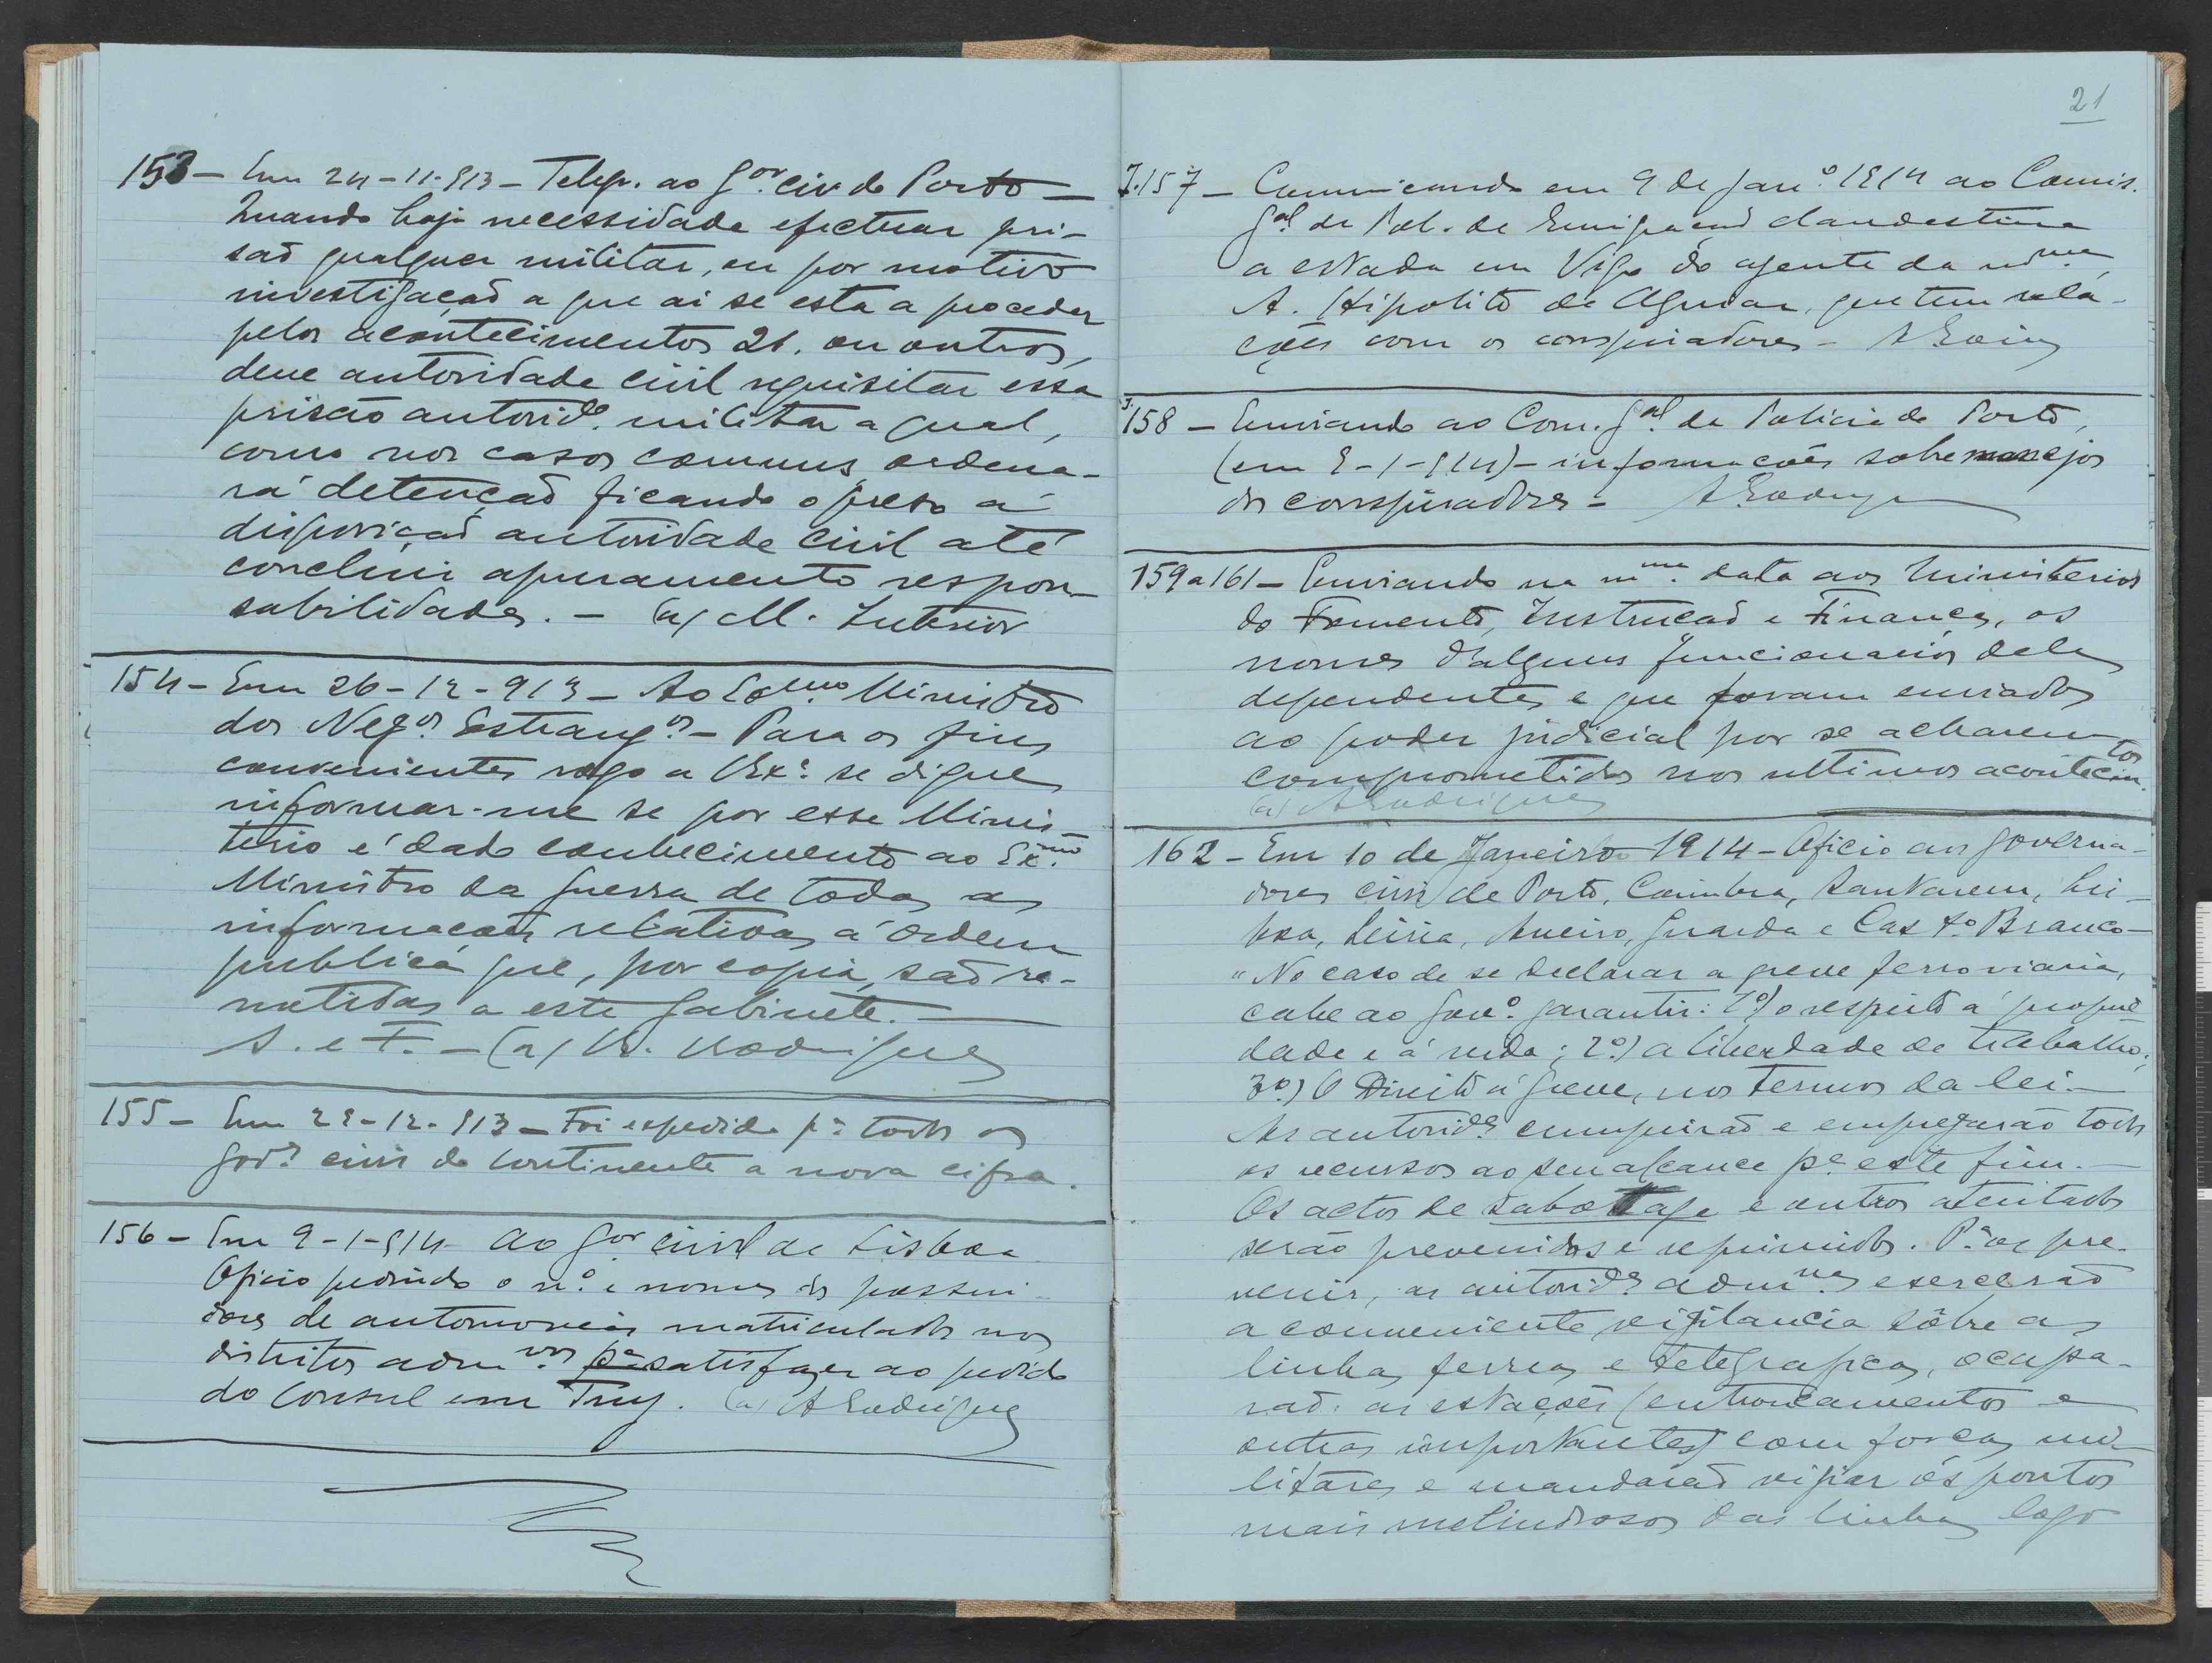 153 – Em 24-11-913 – Telegr. ao Gor. civ do Porto –
Quando haja necessidade efectuar pri-
são qualquer militar, ou por motivo
investigação a que aí se está a proceder
pelos acontecimentos 21, ou outros,
deve autoridade civil requisitar essa
prisão autoride. militar a qual,
como nos casos comuns, ordena-
rá detenção ficando o preso á
disposição autoridade civil até
concluir apuramento respon-
sabilidades. – (a) M. Interior
154 – Em 26-12-913 – Ao Exmo Ministro
dos Negos Estrangos – Para os fins
convenientes rogo a V Exa. se digne
informar-me se por esse Minis-
tério é dado conhecimento ao Exmo
Ministro da Guerra de todas as
informações relativas á ordem
publica que, por copia, são re-
metidas a este Gabinete. –
S. e F. – (a) R. Rodrigues
155 – Em 29-12-913 – Foi expedida pa todos os
govs civis do Continente a nova cifra.
156 – Em 9-1-914 Ao Gor civil de Lisboa
Oficio pedindo o no. e nomes dos possui-
dores de automoveis matriculados nos
distritos admvos pa satisfazer ao pedido
do Consul em Tuy. (a) A Rodrigues
21
J.157 – Comunicando em 9 de Jano. 1914 ao Comis.
Gal. de Pol. de Emigração clandestina
a estada em Vigo do agente da mma
A. Hipolito de Aguiar, que tem rela-
ções com os conspiradores –
J.
158 – Enviando ao Com. Gal. de Policia do Porto,
(em 9-1-914) – informações sobre manejos
dos conspiradores – A Rodrigues
159 a 161 – Enviando na mma. data aos Ministerios
do Fomento, Instrução e Finanças, os
nomes d'alguns funcionarios deles
dependentes e que foram enviados
ao poder judicial por se acharem
comprometidos nos ultimos acontecimtos.
(a) A Rodrigues
162 – Em 10 de Janeiro 1914 – Oficio aos governa-
dores civis de Porto, Coimbra, Santarem, Lis-
boa, Leiria, Aveiro, Guarda e Casto. Branco –
"No caso de se declarar a greve ferroviaria,
cabe ao Govo. garantir: 1o) o respeito á proprie
dade e á vida; 2o) a liberdade de trabalho;
3o) O Direito á greve, nos termos da lei. –
As autorides cumprirão e empregarão todos
os recursos ao seu alcance pa este fim. –
Os actos de sabottage e outros atentados
serão prevenidos e reprimidos. Pa os pre-
venir, as autorides admvas exercerão
a conveniente vigilancia sôbre as
linhas ferreas e telegraficas, ocupa-
rão as estações (entroncamentos e
outras importantes) com forças mi-
litares e mandarão vigiar os pontos
mais melindrosos das linhas logo